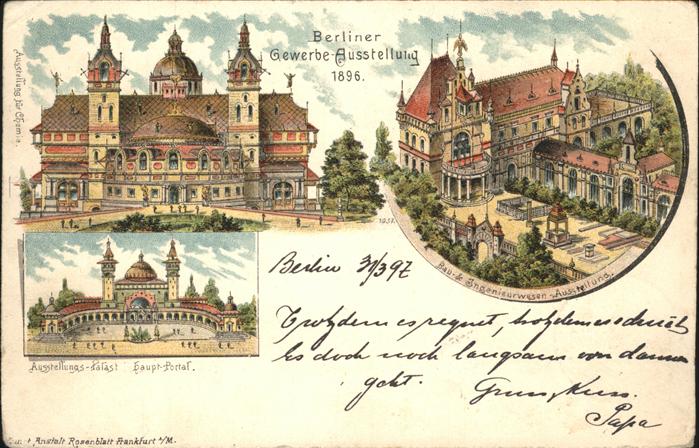 Berliner
Gewerbe-Ausstellung
1896.
Ausstellung für Chemie.
1051.
Bau- & Ingenieurwesen-Ausstellung.
Ausstellungs-Palast Haupt-Portal.
Berlin 31/3 97
Trotzdem es regnet, trotzdem es schneit
Es doch noch langsam von dannen
geht. Gruss, Kuss.
Papa
Anstalt Rosenblatt Frankfurt a/M.